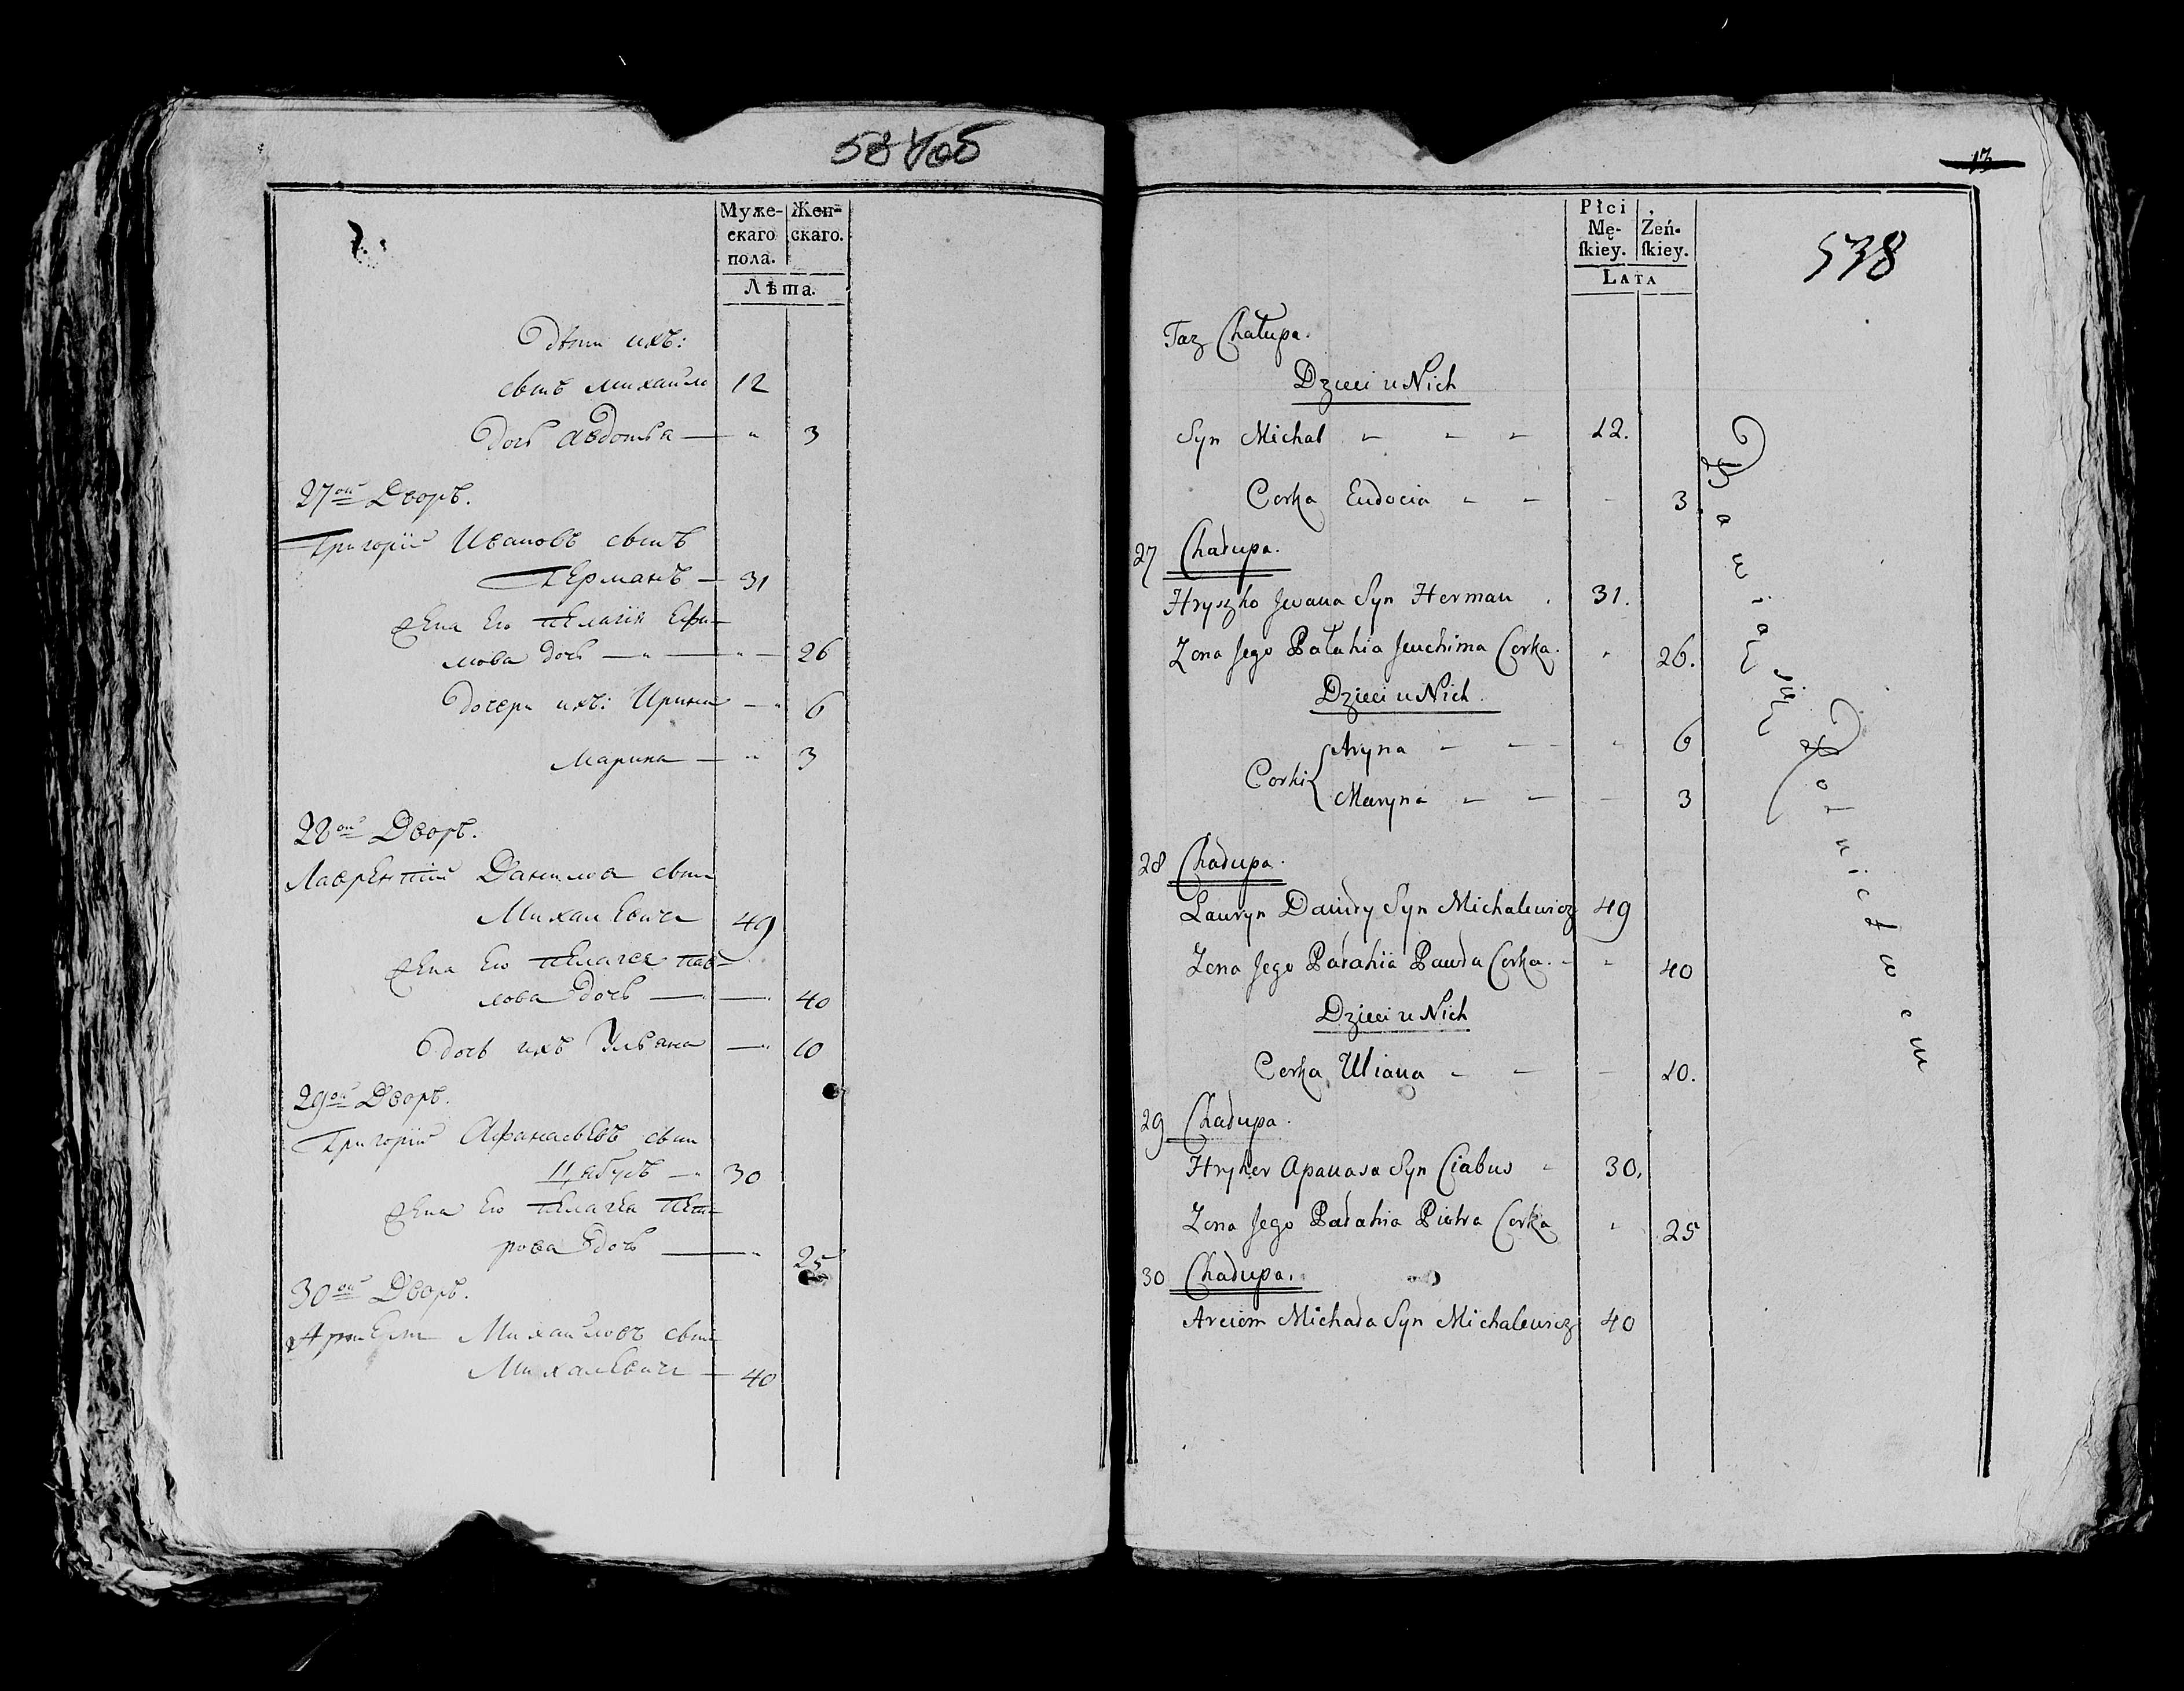 Муже-
скаго
пола.
Жен-
скаго.
Лѣта.
Дѣти ихъ:
сынъ Михайло 12
Дочь Авдотья — " 3
27ой Дворъ.
Григорій Ивановъ сынъ
Германъ — 31
Жена Его Пелагія Ефи-
мова Дочь — " — " — 26
Дочери ихъ: Ирина — " 6
Марина — " 3
28ой Дворъ.
Лаврентій Данилова сынъ
Михалевичъ 49
Жена Его Пелагея Пав-
лова Дочь — " — " 40
Дочь ихъ Ульяна — " 10
29ой Дворъ.
Григорій Афанасьевъ сынъ
Цябусъ — " 30
Жена Его Пелагея Пет-
рова Дочь — " 25
30ой Дворъ.
Артемъ Михайловъ сынъ
Михалевичъ — 40
13
538
Płci
Mę-
ſkiey.
Żeń-
ſkiey.
LATA
Taz Chałupa.
Dzieci u Nich
Syn Michał " " " 12.
Corka Eudocia " - - 3
27 Chałupa.
Hryszko Jwana Syn Herman . 31.
Zona Jego Pałahia Jeuchima Corka. " 26.
Dzieci u Nich.
Corki { Aryna - - - " 6
Maryna - - - 3
28 Chałupa.
Lauryn Daniły Syn Michalewicz 49
Zona Jego Pałahia Pawła Corka. - " 40
Dzieci u Nich
Corka Uliana - - - 10.
29 Chałupa.
Hryher Apanasa Syn Ciabus " 30.
Zona Jego Pałahia Piotra Corka " 25
30 Chałupa.
Arciom Michała Syn Michalewicz 40
Bawią się Rolnictwem